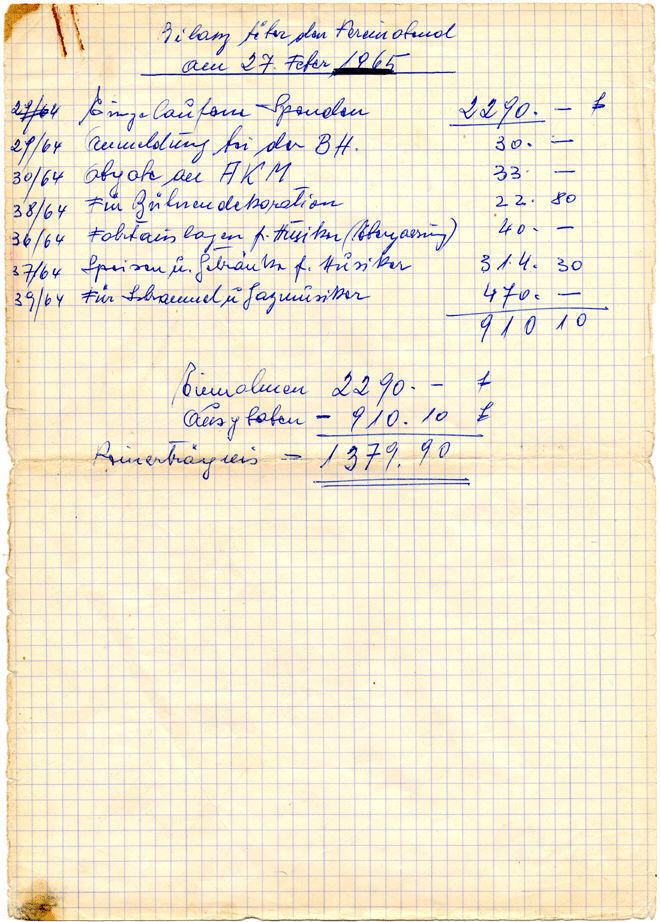 Bilanz über den Vereinabend
am 27. Feber 1965
29/64 Eingelaufene Spenden 2290.—
29/64 Anmeldung bei der BH. 30.—
30/64 Abgabe an AKM 33.—
38/64 Für Bühnendekoration 22.80
36/64 Fahrtauslagen f. Musiker 40.—
37/64 Speisen u. Getränke f. Musiker 314.30
39/64 Für Schrammel u Jazzmusiker 470.—
910 10
Einnahmen 2290.—
Ausgaben – 910.10
Reinerträgnis – 1379.90